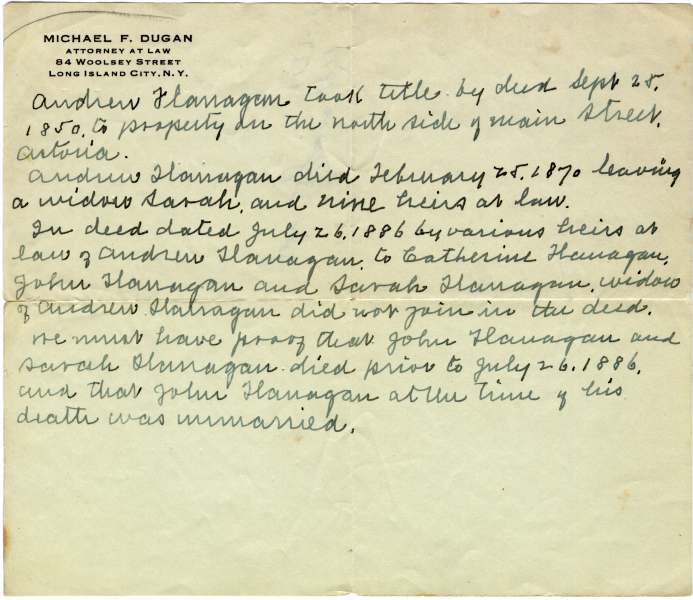 MICHAEL F. DUGAN
ATTORNEY AT LAW
84 WOOLSEY STREET
LONG ISLAND CITY, N.Y.
Andrew Flanagan took title by deed Sept 25,
1850, to property on the north side of Main Street,
Astoria.
Andrew Flanagan died February 25, 1870 leaving
a widow Sarah, and nine heirs at law.
In deed dated July 26, 1886 by various heirs at
law of Andrew Flanagan, to Catherine Flanagan,
John Flanagan and Sarah Flanagan, widow
of Andrew Flanagan did not join in the deed.
We must have proof that John Flanagan and
Sarah Flanagan died prior to July 26, 1886,
and that John Flanagan at the time of his
death was unmarried.